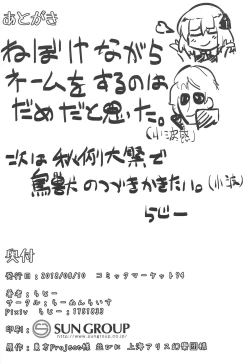 あとがき
ねぼけながら
ネームをするのは
だめだと思いた。
(小波感)
次は秋例大祭で
鳥獣のつづきかきたい。(小波)
らじー
奥付
発行日：2018/08/10 コミックマーケット94
著者：らじー
サークル：らーめんらいす
Pixiv らじー：1751833
印刷：
SUN GROUP
http://www.sungroup.co.jp/
原作：東方Project様 並びに 上海アリス幻樂団様